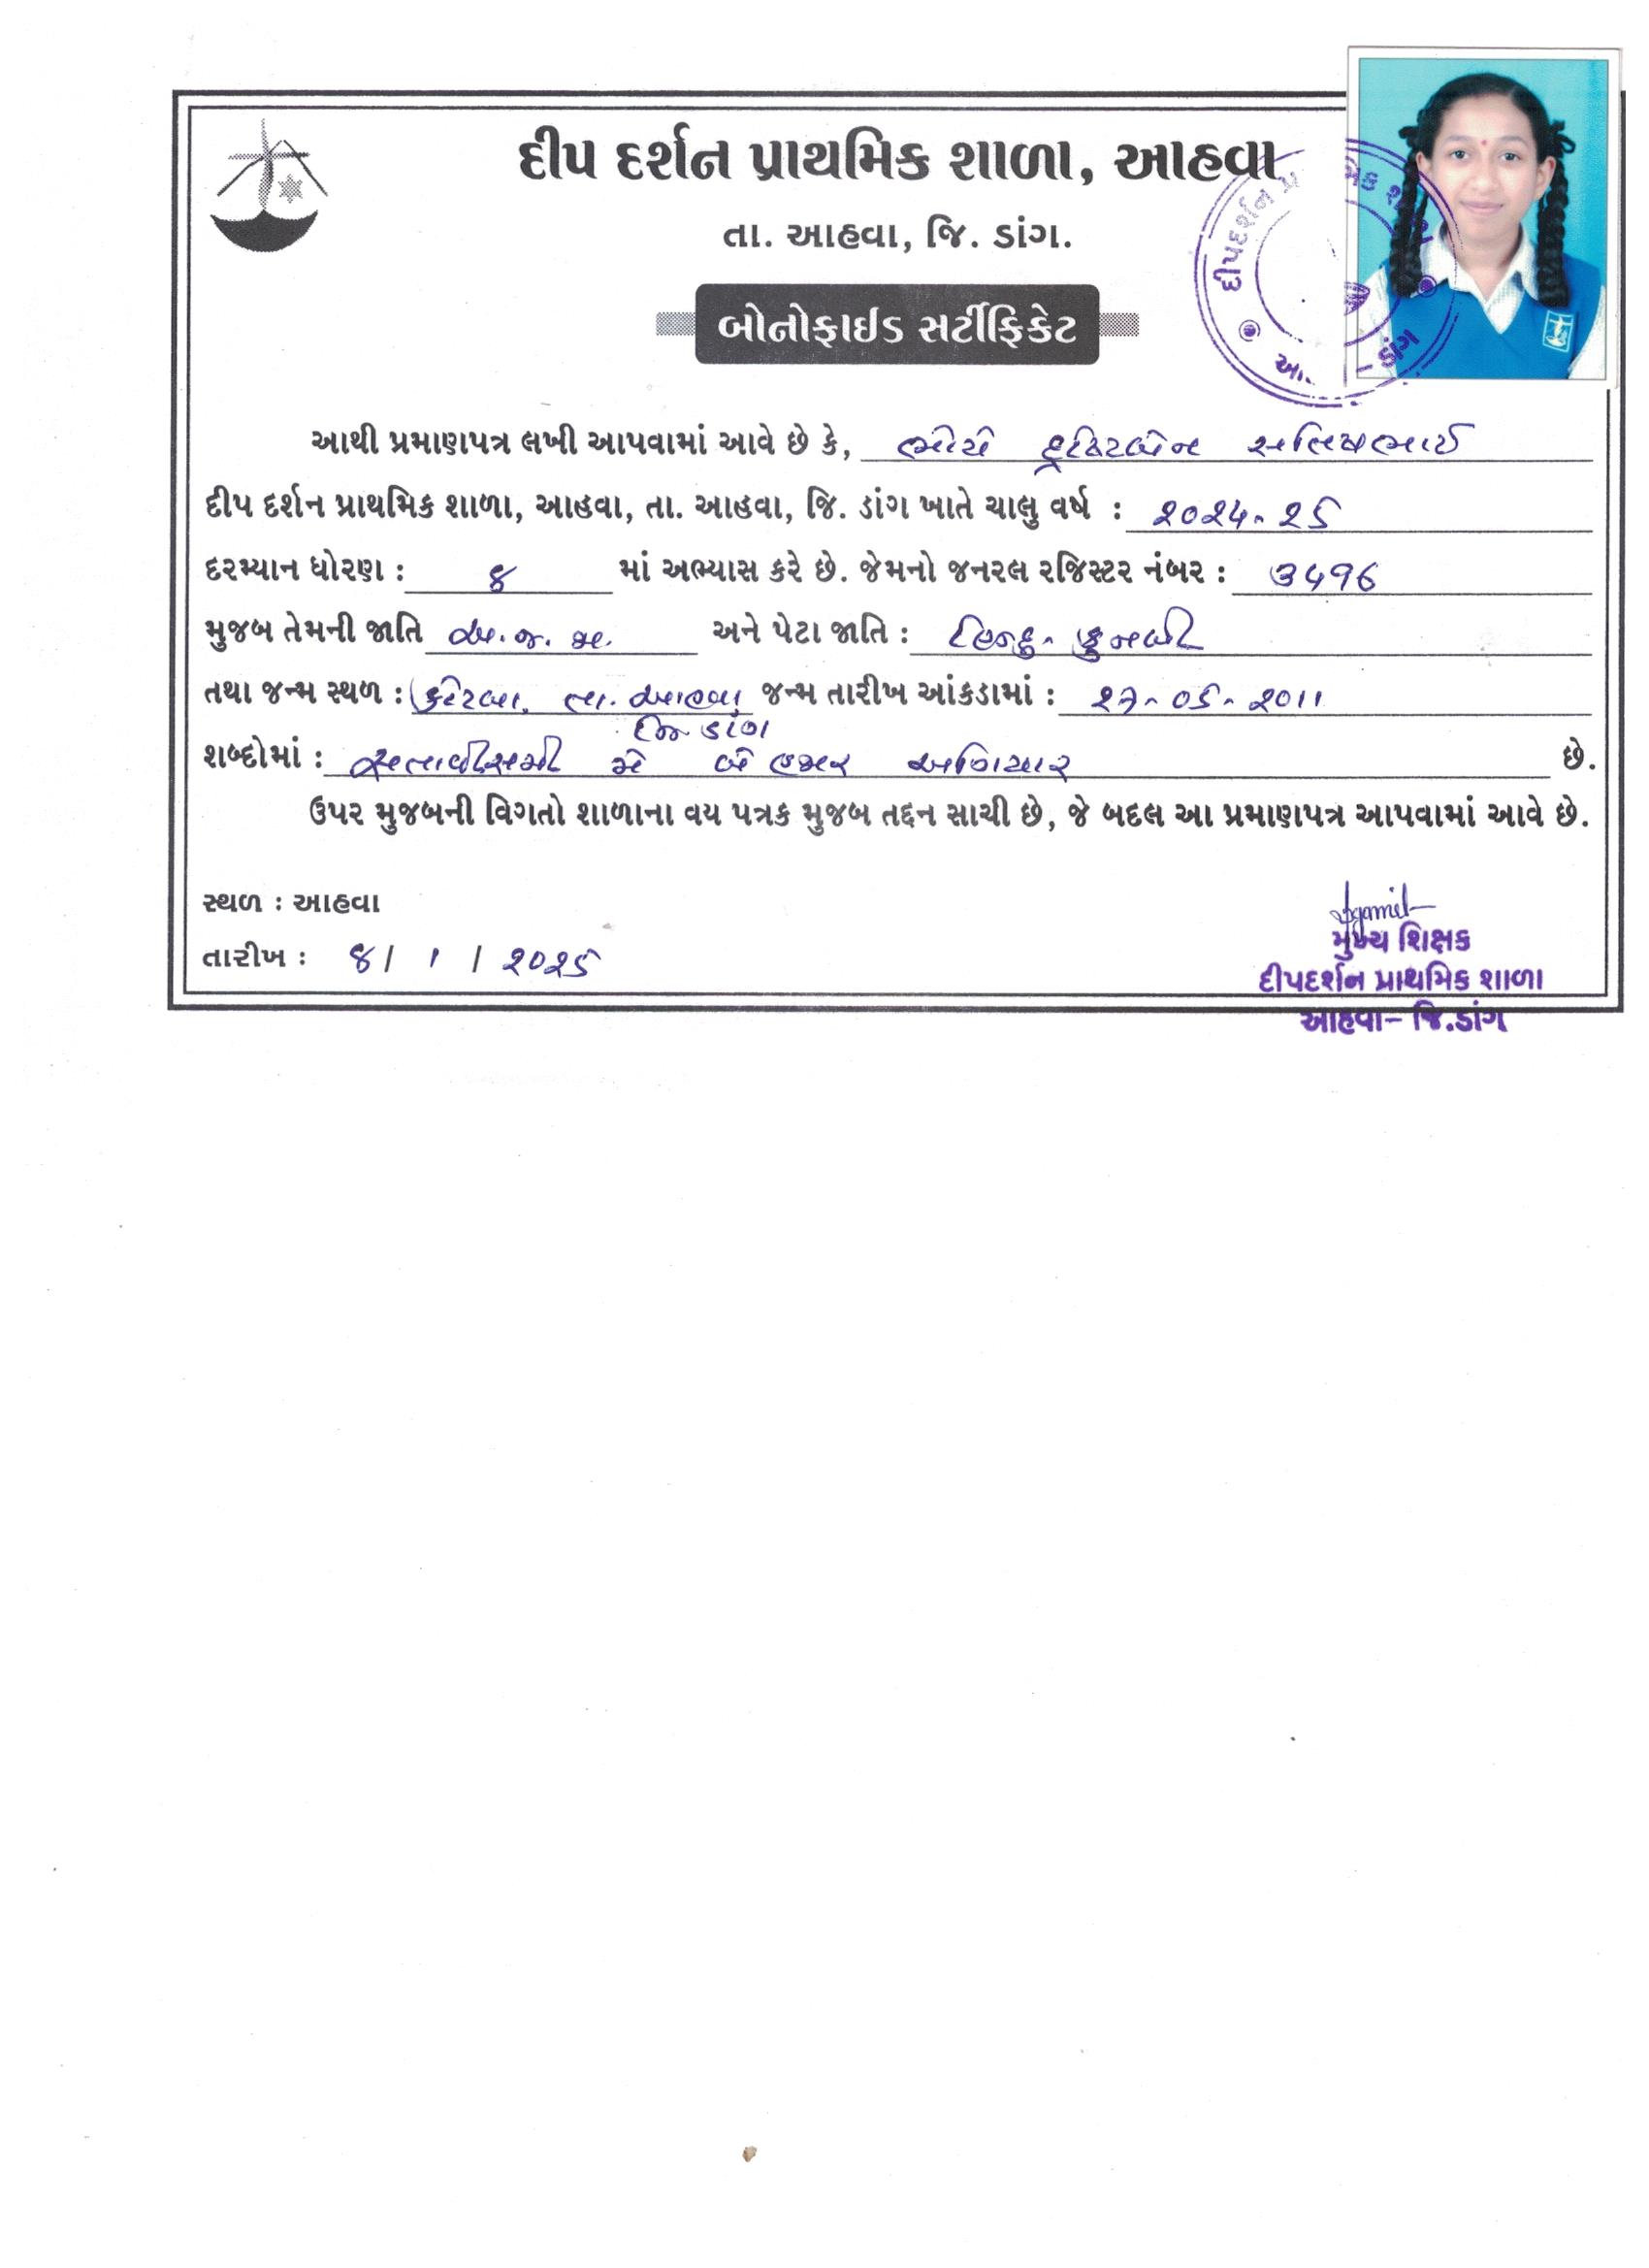 દીપ દર્શન પ્રાથમિક શાળા, આહવા
તા. આહવા, જિ. ડાંગ.
બોનોફાઈડ સર્ટીફિકેટ
આથી પ્રમાણપત્ર લખી આપવામાં આવે છે કે, ભોયે દ્રષ્ટિબેન સતિષભાઈ
દીપ દર્શન પ્રાથમિક શાળા, આહવા, તા. આહવા, જિ. ડાંગ ખાતે ચાલુ વર્ષ : ૨૦૨૪-૨૫
દરમ્યાન ધોરણ : ૪ માં અભ્યાસ કરે છે. જેમનો જનરલ રજિસ્ટર નંબર :
મુજબ તેમની જાતિ અ.જ.જા. અને પેટા જાતિ : હિન્દુ-કુનબી
તથા જન્મ સ્થળ : તા. આહવા, જન્મ તારીખ આંકડામાં : ૨૭-૦૫-૨૦૧૧
જિ ડાંગ
શબ્દોમાં : સત્તાવીસમી મે બે હજાર અગિયાર છે.
ઉપર મુજબની વિગતો શાળાના વય પત્રક મુજબ તદ્દન સાચી છે, જે બદલ આ પ્રમાણપત્ર આપવામાં આવે છે.
સ્થળ : આહવા
તારીખ : ૪/ ૧ / ૨૦૨૫
મુખ્ય શિક્ષક
દીપદર્શન પ્રાથમિક શાળા
આહવા- જિ.ડાંગ